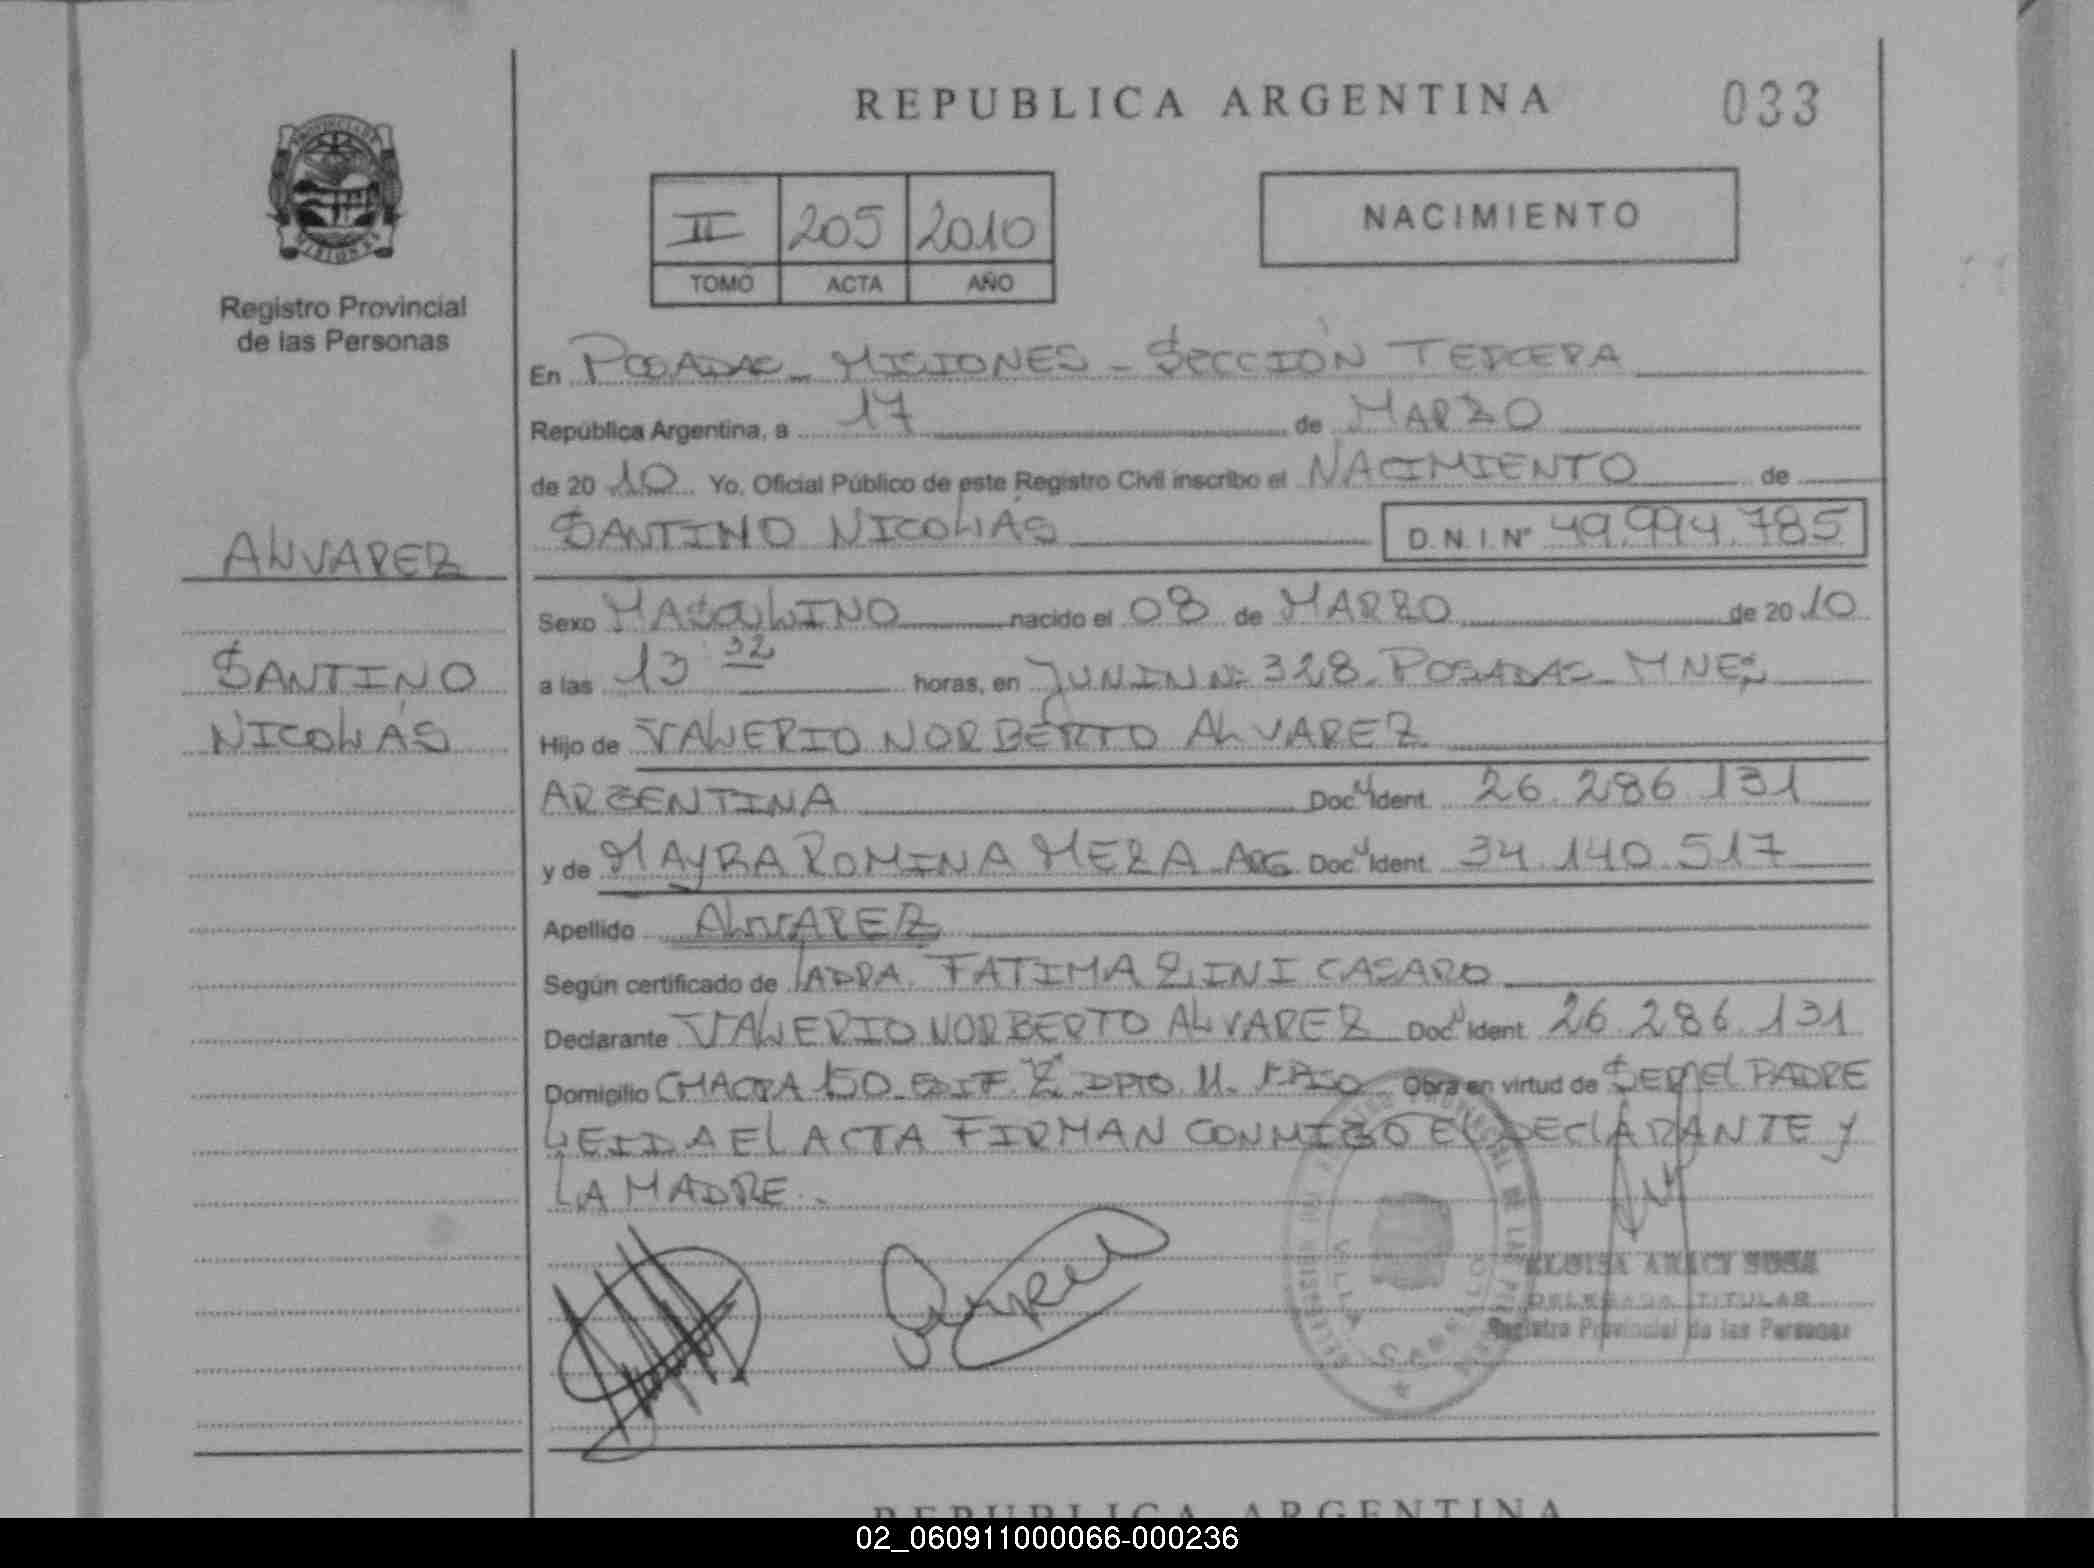 REPUBLICA ARGENTINA
033
II 205 2010
TOMO ACTA AÑO
NACIMIENTO
Registro Provincial
de las Personas
En POSADAS - MISIONES - SECCIÓN TERCERA
República Argentina, a 17 de MARZO
de 2010 Yo, Oficial Público de este Registro Civil inscribo el NACIMIENTO de
SANTINO NICOLÁS D.N.I. Nº 49.994.785
ALVAREZ
SANTINO
NICOLÁS
Sexo MASCULINO nacido el 08 de MARZO de 2010
a las 13 32 horas, en JUNIN Nº 328 - POSADAS - MNES
Hijo de VALERIO NORBERTO ALVAREZ
ARGENTINA Doc. Ident. 26.286.131
y de MAYRA ROMINA MEZA - ARG Doc. Ident. 34.140.517
Apellido ALVAREZ
Según certificado de LA DRA. FATIMA ZINI CASARO
Declarante VALERIO NORBERTO ALVAREZ Doc. Ident. 26.286.131
Domicilio CHACRA 150 - EDIF. Z DPTO 11 - Obra en virtud de SER EL PADRE
LEIDA EL ACTA FIRMAN CONMIGO EL DECLARANTE Y
LA MADRE.-
ELOISA ARACY SOSA
DELEGADA TITULAR
Registro Provincial de las Personas
REPUBLICA ARGENTINA
02_060911000066-000236